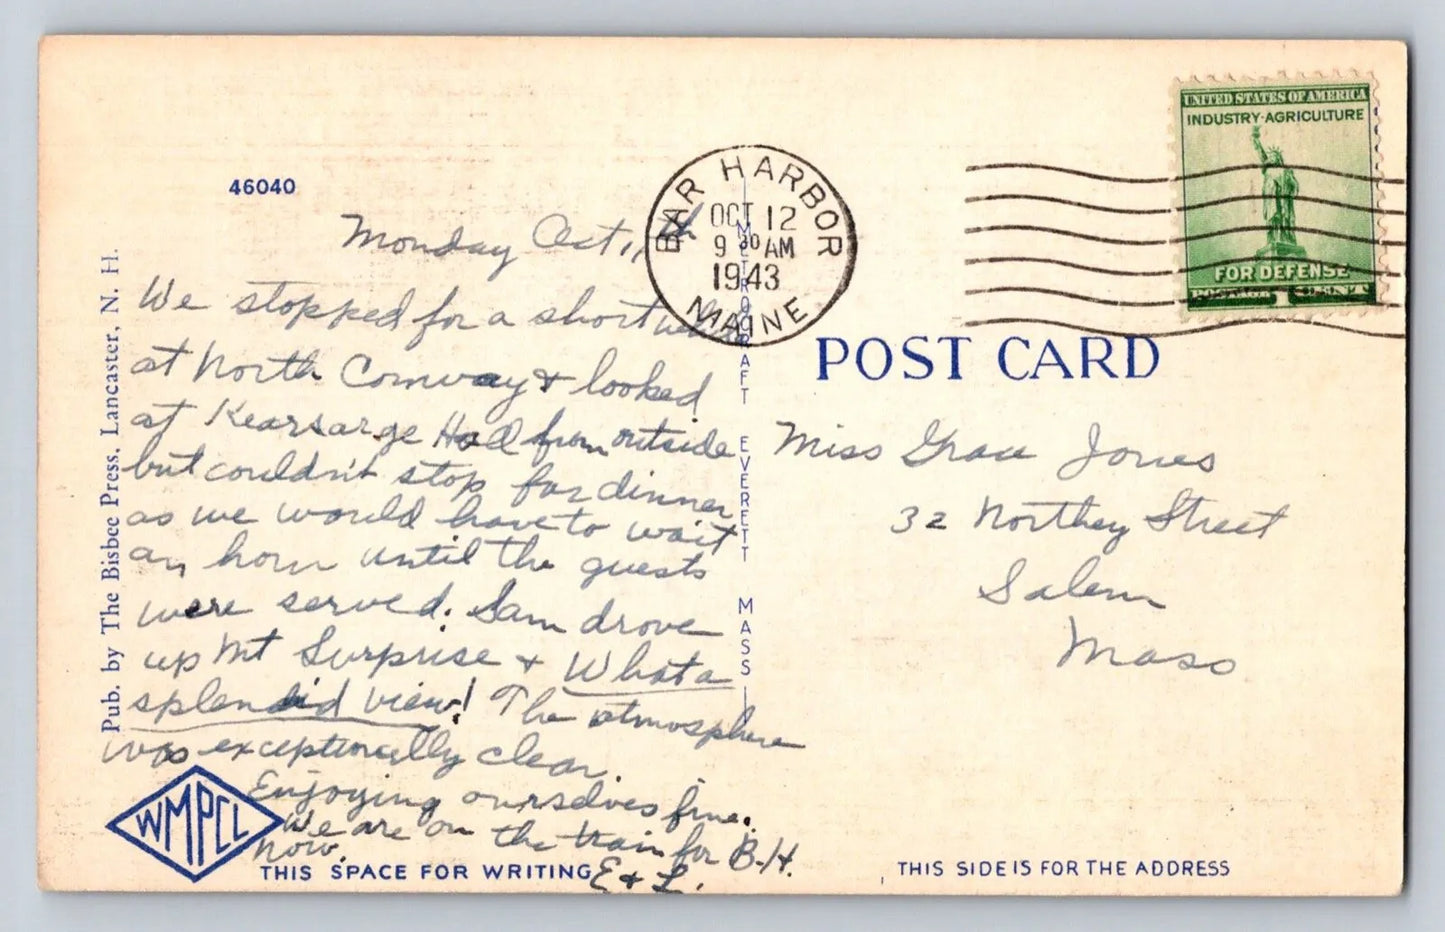 46040
Monday Oct 11
We stopped for a short while
at North Conway & looked
at Kearsarge Hall from outside
but couldn't stop for dinner
as we would have to wait
an hour until the guests
were served. Sam drove
up Mt Surprise & What a
splendid view! The atmosphere
was exceptionally clear.
Enjoying ourselves fine.
We are on the train for B-H.
now.
E & L.
Pub. by The Bisbee Press, Lancaster, N. H.
WMPCL
THIS SPACE FOR WRITING
METROCRAFT EVERETT MASS
BAR HARBOR
OCT 12
9 30 AM
1943
MAINE
UNITED STATES OF AMERICA
INDUSTRY·AGRICULTURE
FOR DEFENSE
POSTAGE 1 CENT
POST CARD
Miss Grace Jones
32 Northey Street
Salem
Mass
THIS SIDE IS FOR THE ADDRESS